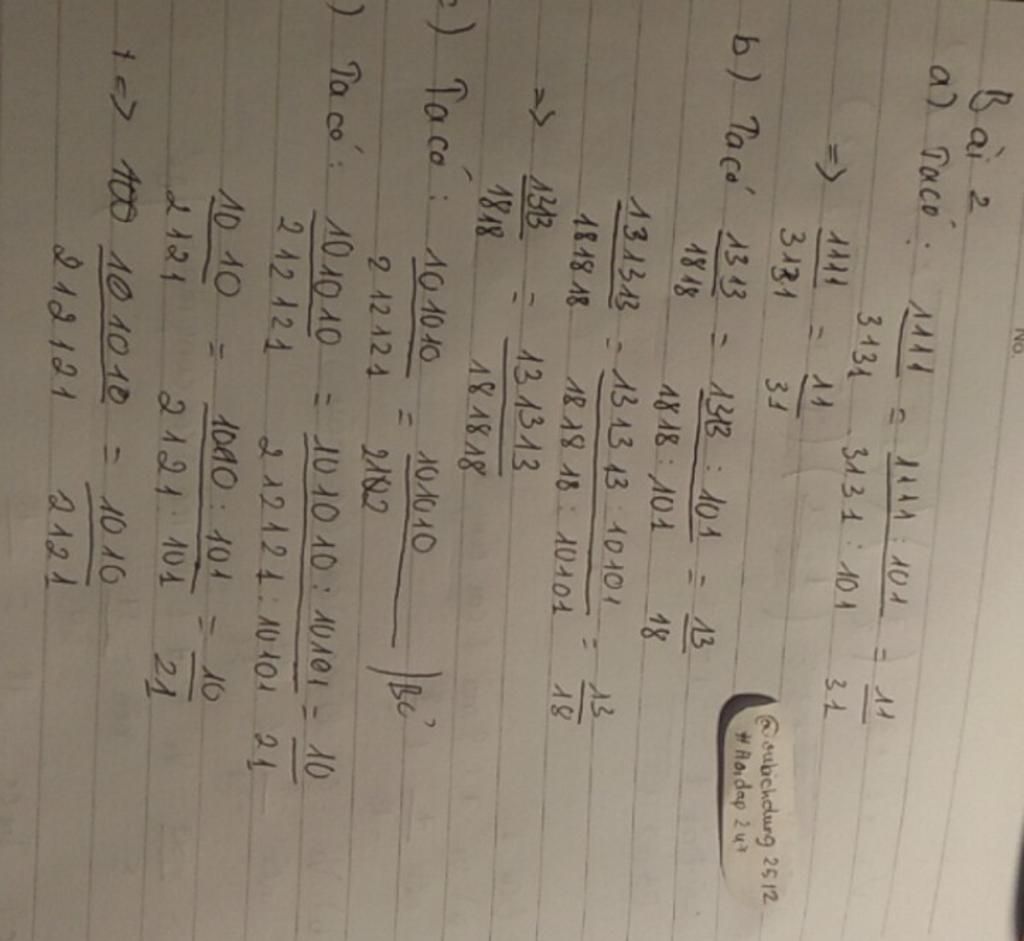 No.
Bài 2
a) Ta có: 1111/3131 = 1111:101/3131:101 = 11/31
=> 1111/3131 = 11/31
b) Ta có 1313/1818 = 1313:101/1818:101 = 13/18
131313/181818 = 131313:10101/181818:10101 = 13/18
=> 1313/1818 = 131313/181818
c) Ta có: 101010/212121 = 101010/ |Bỏ
) Ta có: 101010/212121 = 101010:10101/212121:10101 = 10/21
1010/2121 = 1010:101/2121:101 = 10/21
=> 101010/212121 = 1010/2121
2512